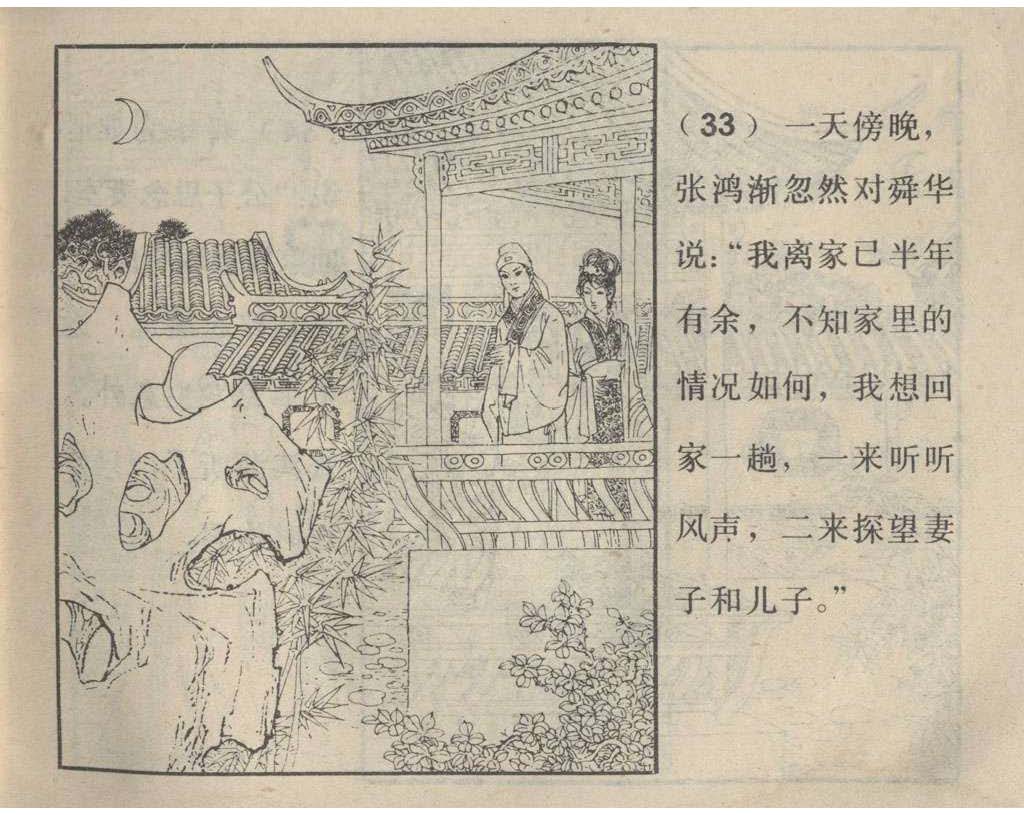 （33）一天傍晚，
张鸿渐忽然对舜华
说：“我离家已半年
有余，不知家里的
情况如何，我想回
家一趟，一来听听
风声，二来探望妻
子和儿子。”